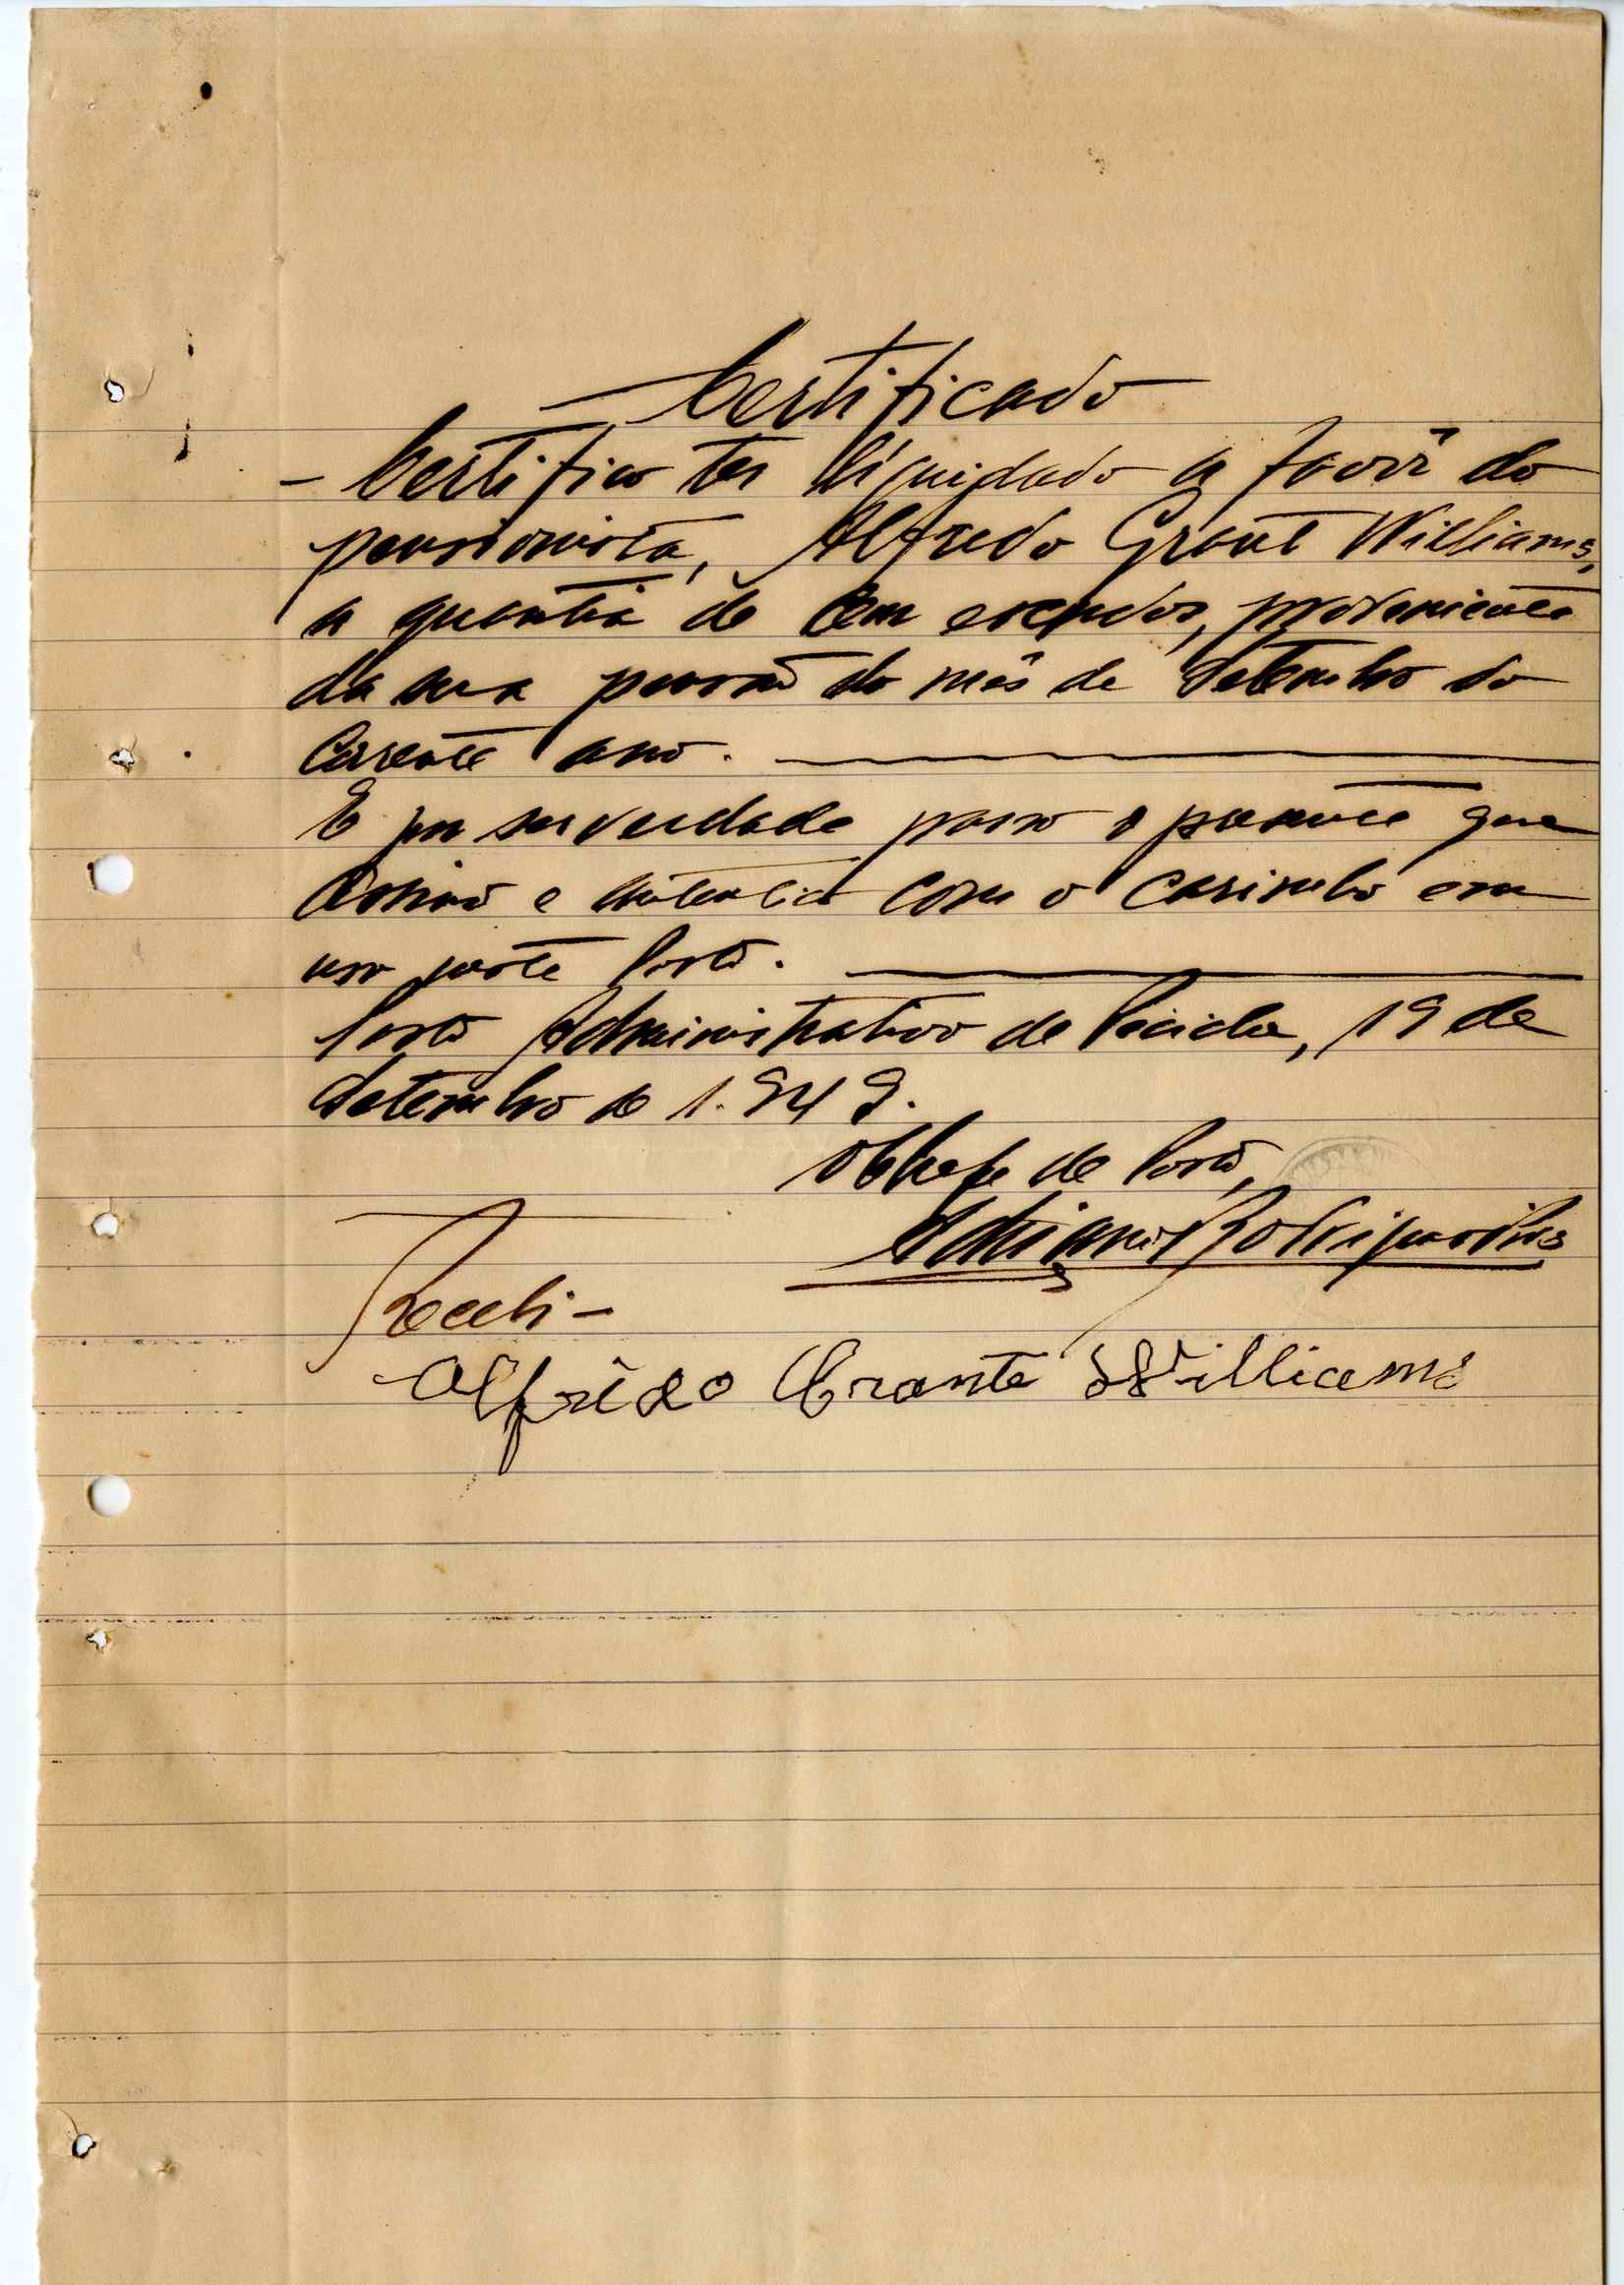 Certificado
- Certifico ter líquidado a favôr do
pensionista, Alfredo Grant Williams,
a quantia de Cem escudos, proveniente
da sua pensão do mês de Setembro do
Corrente ano.
E por ser verdade passo o presente que
Assino e autentico com o carimbo em
uso neste Posto.
Posto Administrativo de 19 de
Setembro de 1.949.
O Chefe de Posto,
Adriano Rodrigues
Recebi -
Alfrêdo Grante Williams